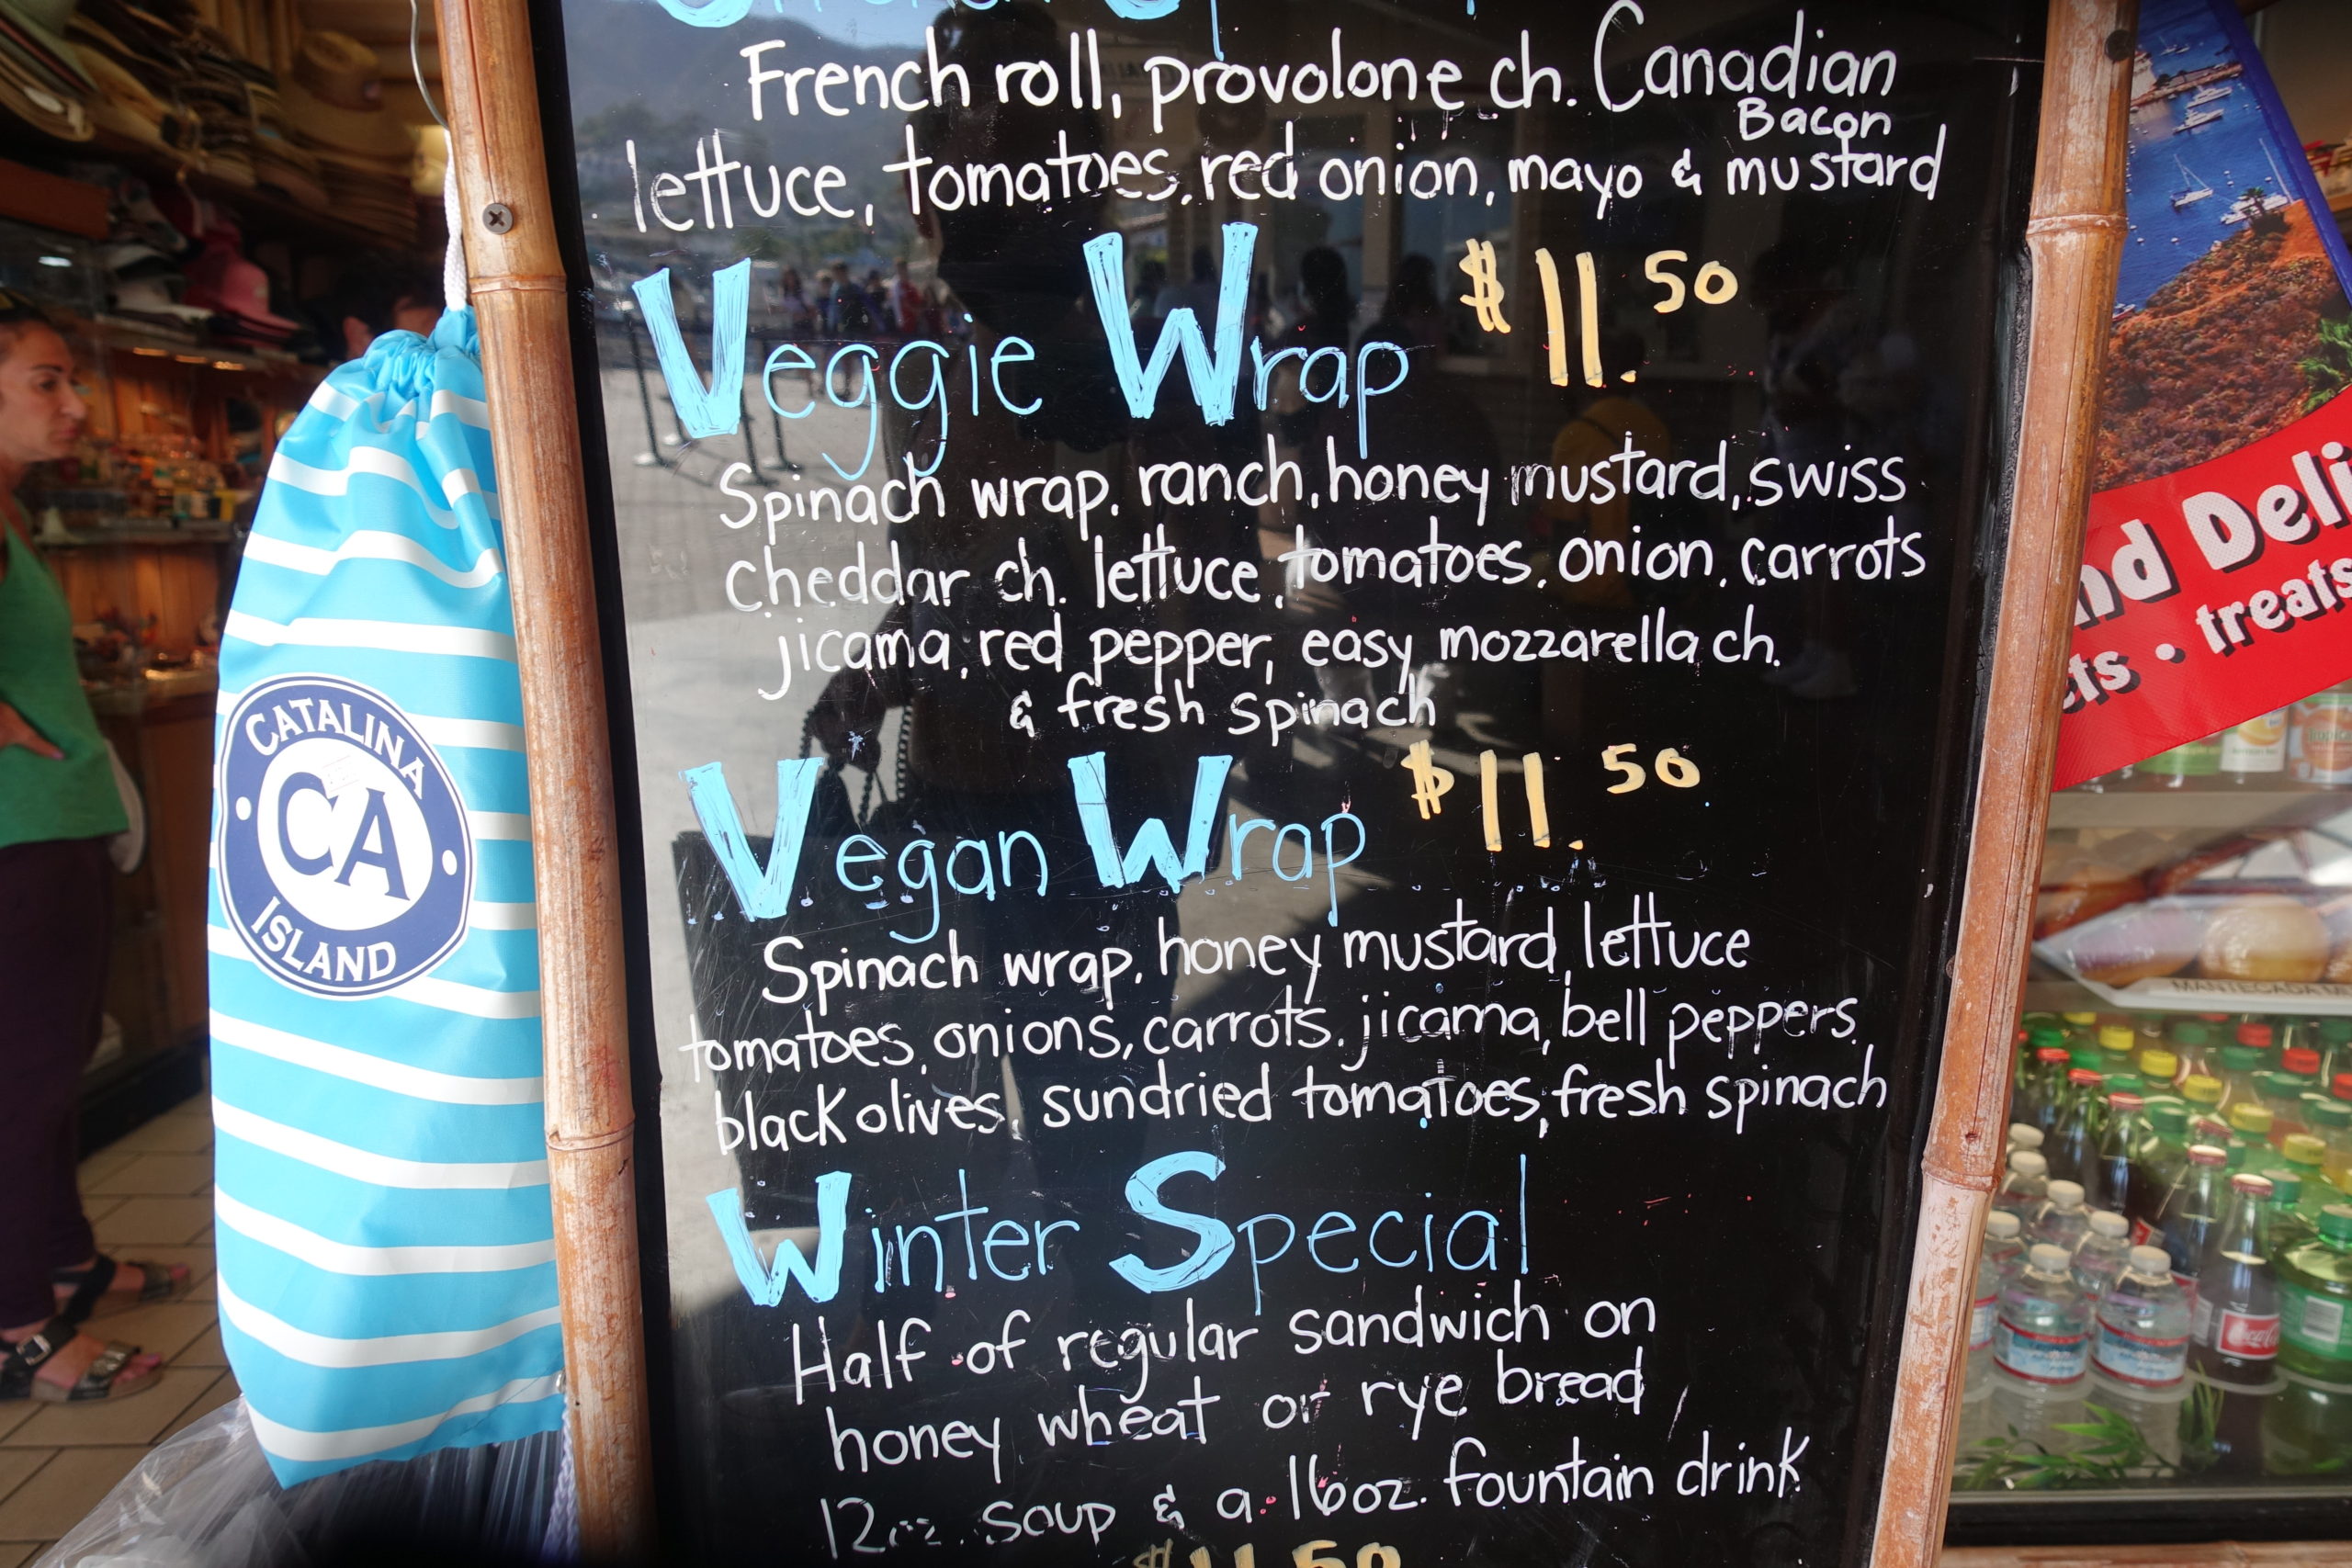 French roll, provolone ch. Canadian
Bacon
lettuce, tomatoes, red onion, mayo & mustard
Veggie Wrap $11.50
Spinach wrap, ranch, honey mustard, swiss
cheddar ch. lettuce, tomatoes, onion, carrots
jicama, red pepper, easy mozzarella ch.
& fresh spinach
Vegan Wrap $11.50
Spinach wrap, honey mustard, lettuce
tomatoes, onions, carrots, jicama, bell peppers,
black olives, sundried tomatoes, fresh spinach
Winter Special
Half of regular sandwich on
honey wheat or rye bread
12oz. soup & a 16oz. fountain drink
CATALINA
CA
ISLAND
Deli
treats
Coca-Cola